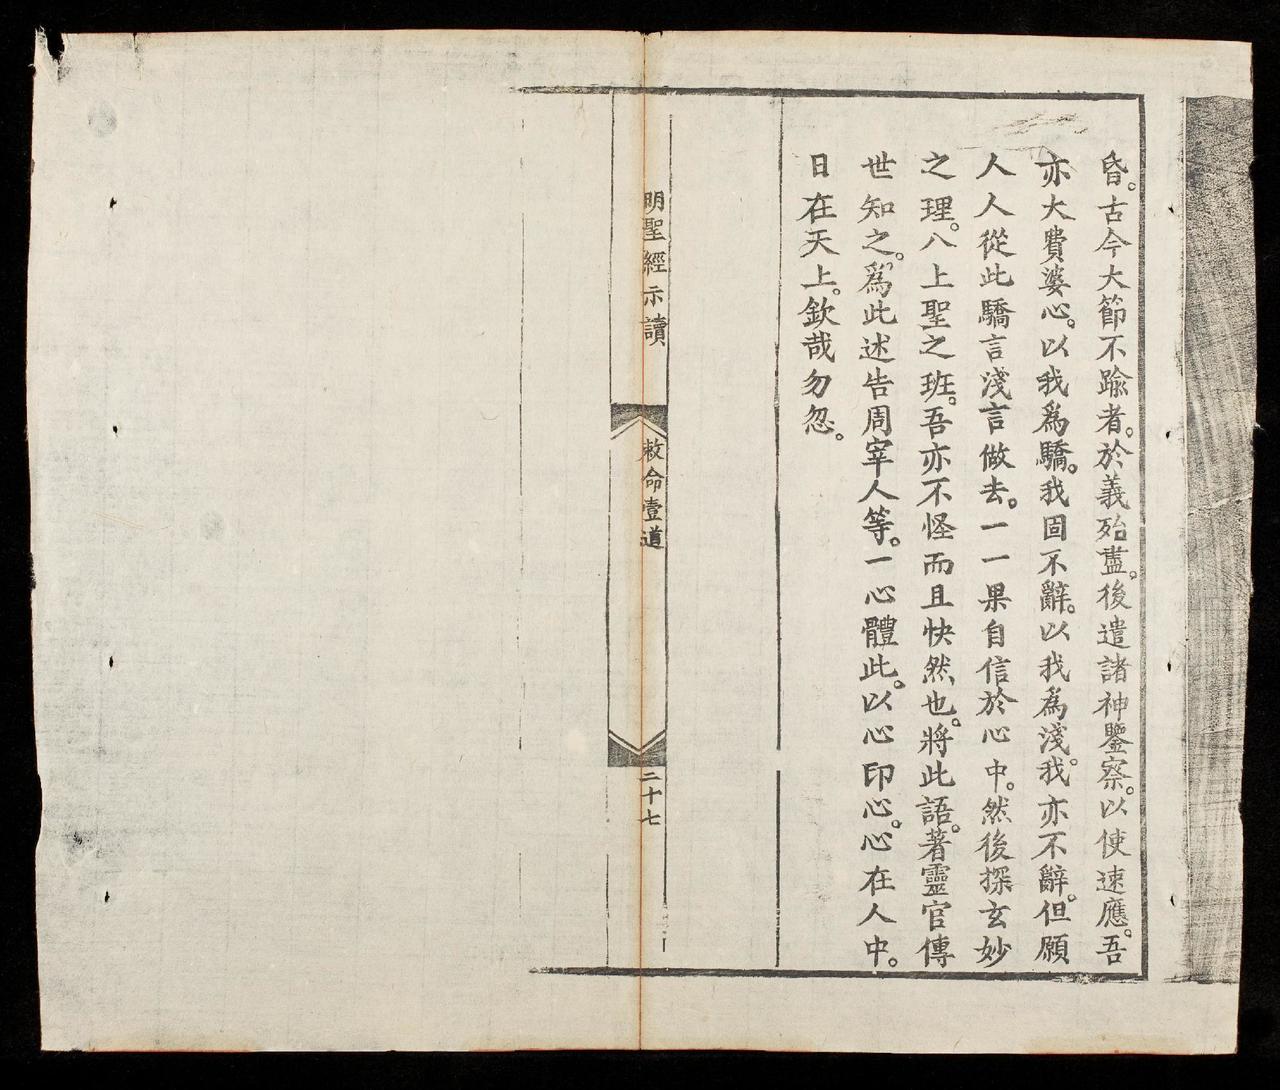 昏。古今大節不踰者。於義殆盡。後遣諸神鑒察。以使速應。吾
亦大費婆心。以我爲驕。我固不辭。以我爲淺。我亦不辭。但願
人人從此驕言淺言做去。一一果自信於心中。然後探玄妙
之理。八上聖之班。吾亦不怪而且快然也。將此語。著靈官傳
世知之。爲此述告周宰人等。一心體此。以心印心。心在人中。
日在天上。欽哉勿忽。
明聖經示讀
敕命壹道
二十七